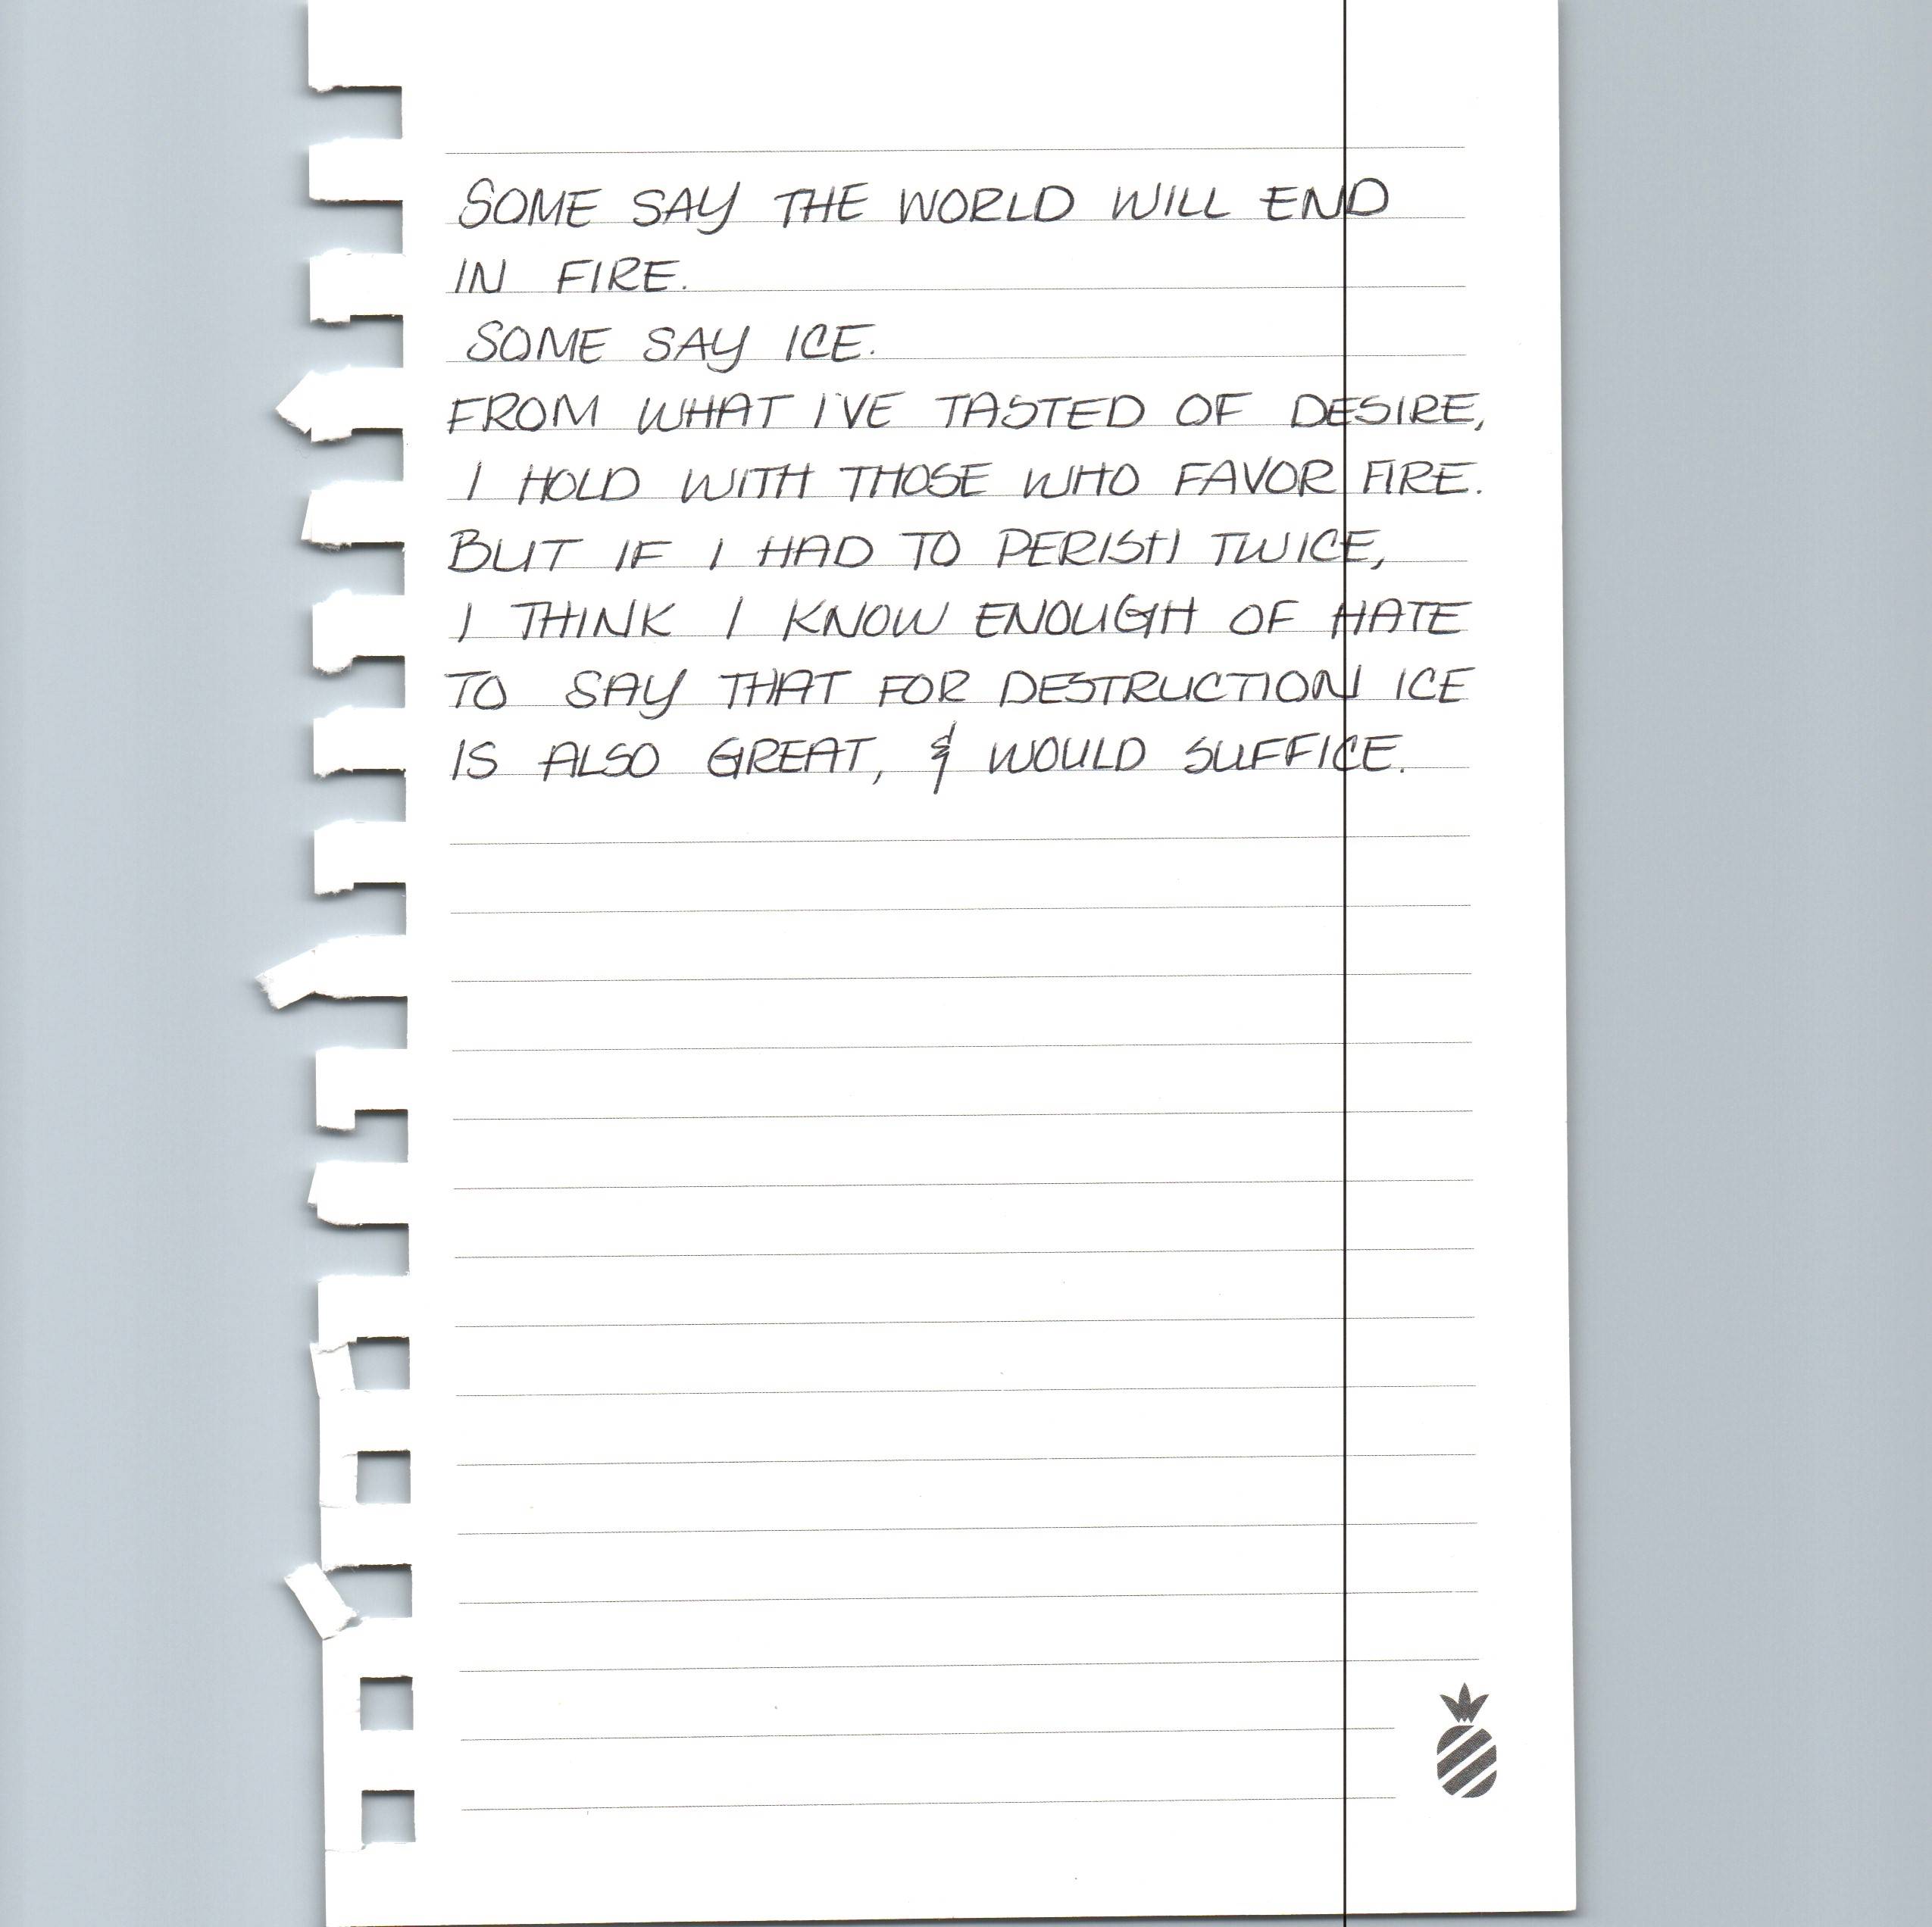 SOME SAY THE WORLD WILL END
IN FIRE.
SOME SAY ICE.
FROM WHAT I'VE TASTED OF DESIRE,
I HOLD WITH THOSE WHO FAVOR FIRE.
BUT IF I HAD TO PERISH TWICE,
I THINK I KNOW ENOUGH OF HATE
TO SAY THAT FOR DESTRUCTION ICE
IS ALSO GREAT, & WOULD SUFFICE.